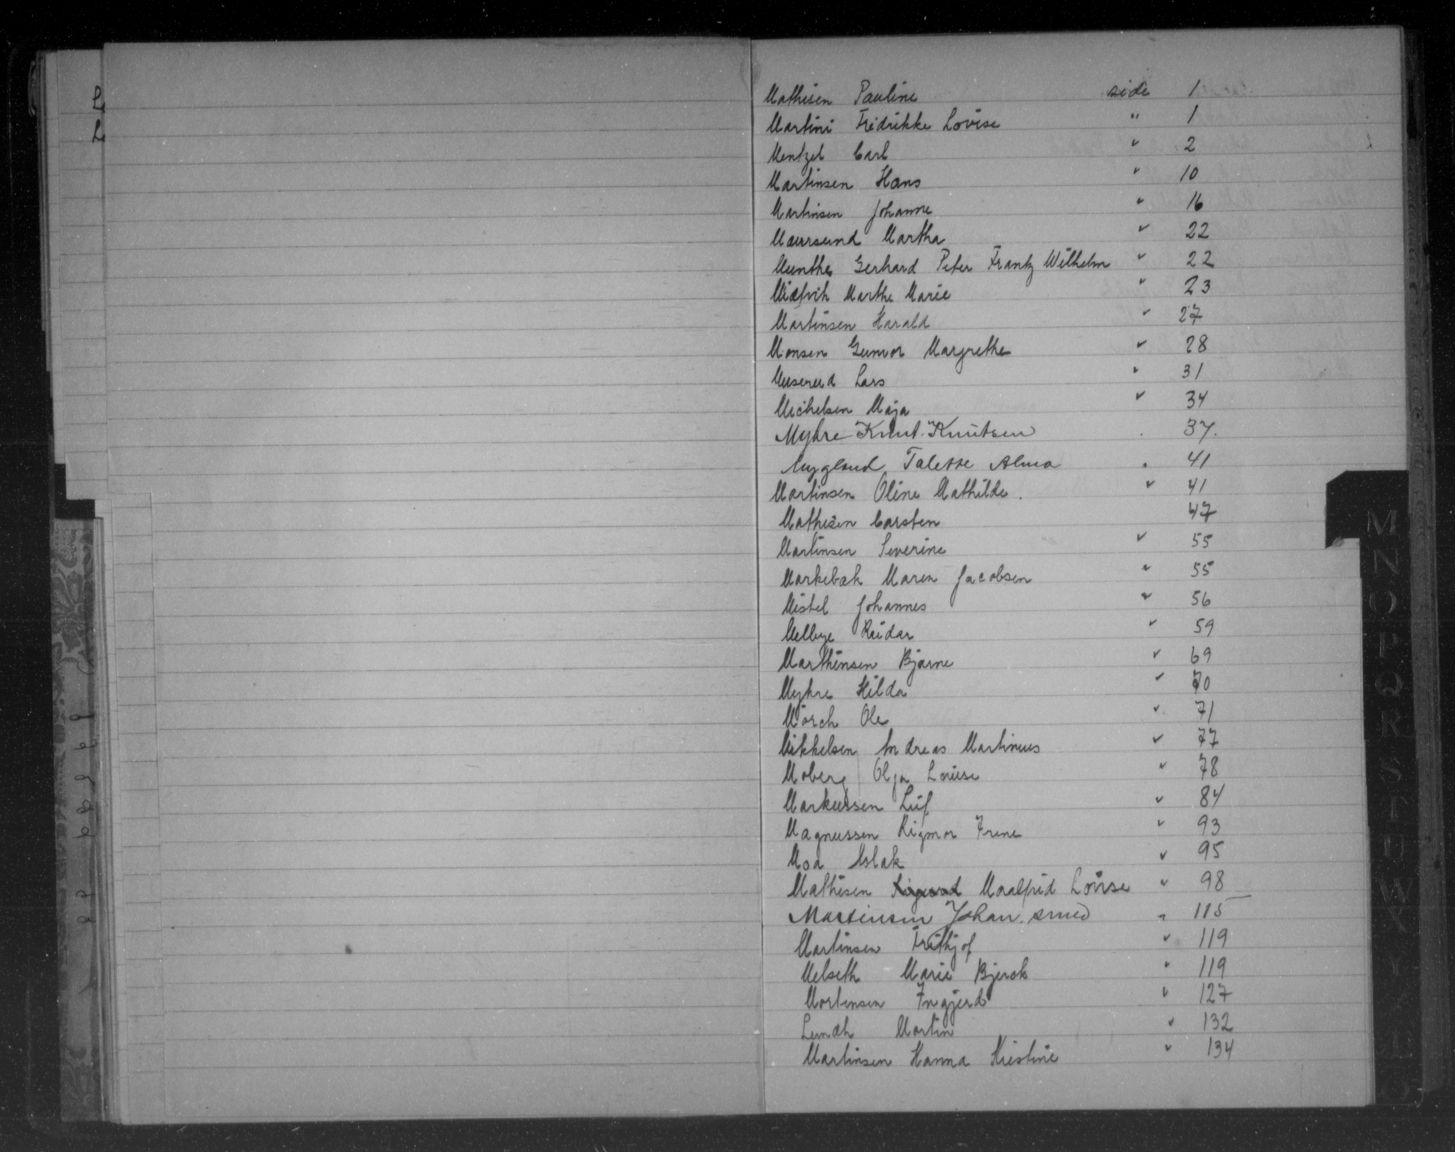 Mathisen Pauline side 1
Martini Fredrikke Lovise " 1
Mentzel Carl " 2
Martinsen Hans " 10
Martinsen Johanne " 16
Maursund Martha " 22
Munthe Gerhard Peter Frantz Wilhelm " 22
Midtvik Marthe Marie " 23
Martinsen Harald " 27
Monsen Gunvor Margrethe " 28
Muserud Lars " 31
Michelsen Maja " 34
Myhre Knut Knutsen . 37.
Mygland Talette Alma " 41
Martinsen Oline Mathilde . " 41
Mathisen Carsten 47
Martinsen Severine " 55
Markebæk Maren Jacobsen " 55
Mistel Johannes " 56
Melbye Reidar " 59
Marthinsen Bjarne " 69
Myhre Hilda " 70
Mörch Ole " 71
Mikkelsen Andreas Martinius " 77
Moberg Olga Louise " 78
Markussen Leif " 84
Magnussen Rigmor Irene " 93
Moa Aslak " 95
Mathisen Maalfrid Lovise " 98
Martinsen Johan smed " 115
Martinsen Frithjof " 119
Melseth Marie Bjerck " 119
Mortensen Ingjerd " 127
Martin " 132
Martinsen Hanna Kristine " 134
M
N
O
P
Q
R
S
T
U
W